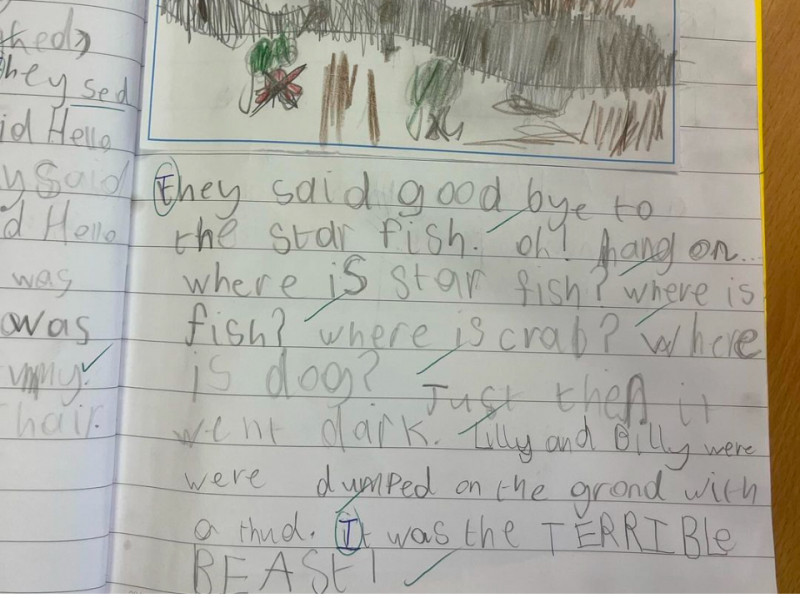 hed
hey sed
id Hello
y Said
d Hello
was
was
ummy.
hair.
They said good bye to
the star fish. oh! hang on...
where iS star fish? where is
fish? where is crab? Where
is dog?
Just then it
went dark. Lilly and Billy were
were dumped on the grond with
a thud. It was the TERRIBLe
BEASt!